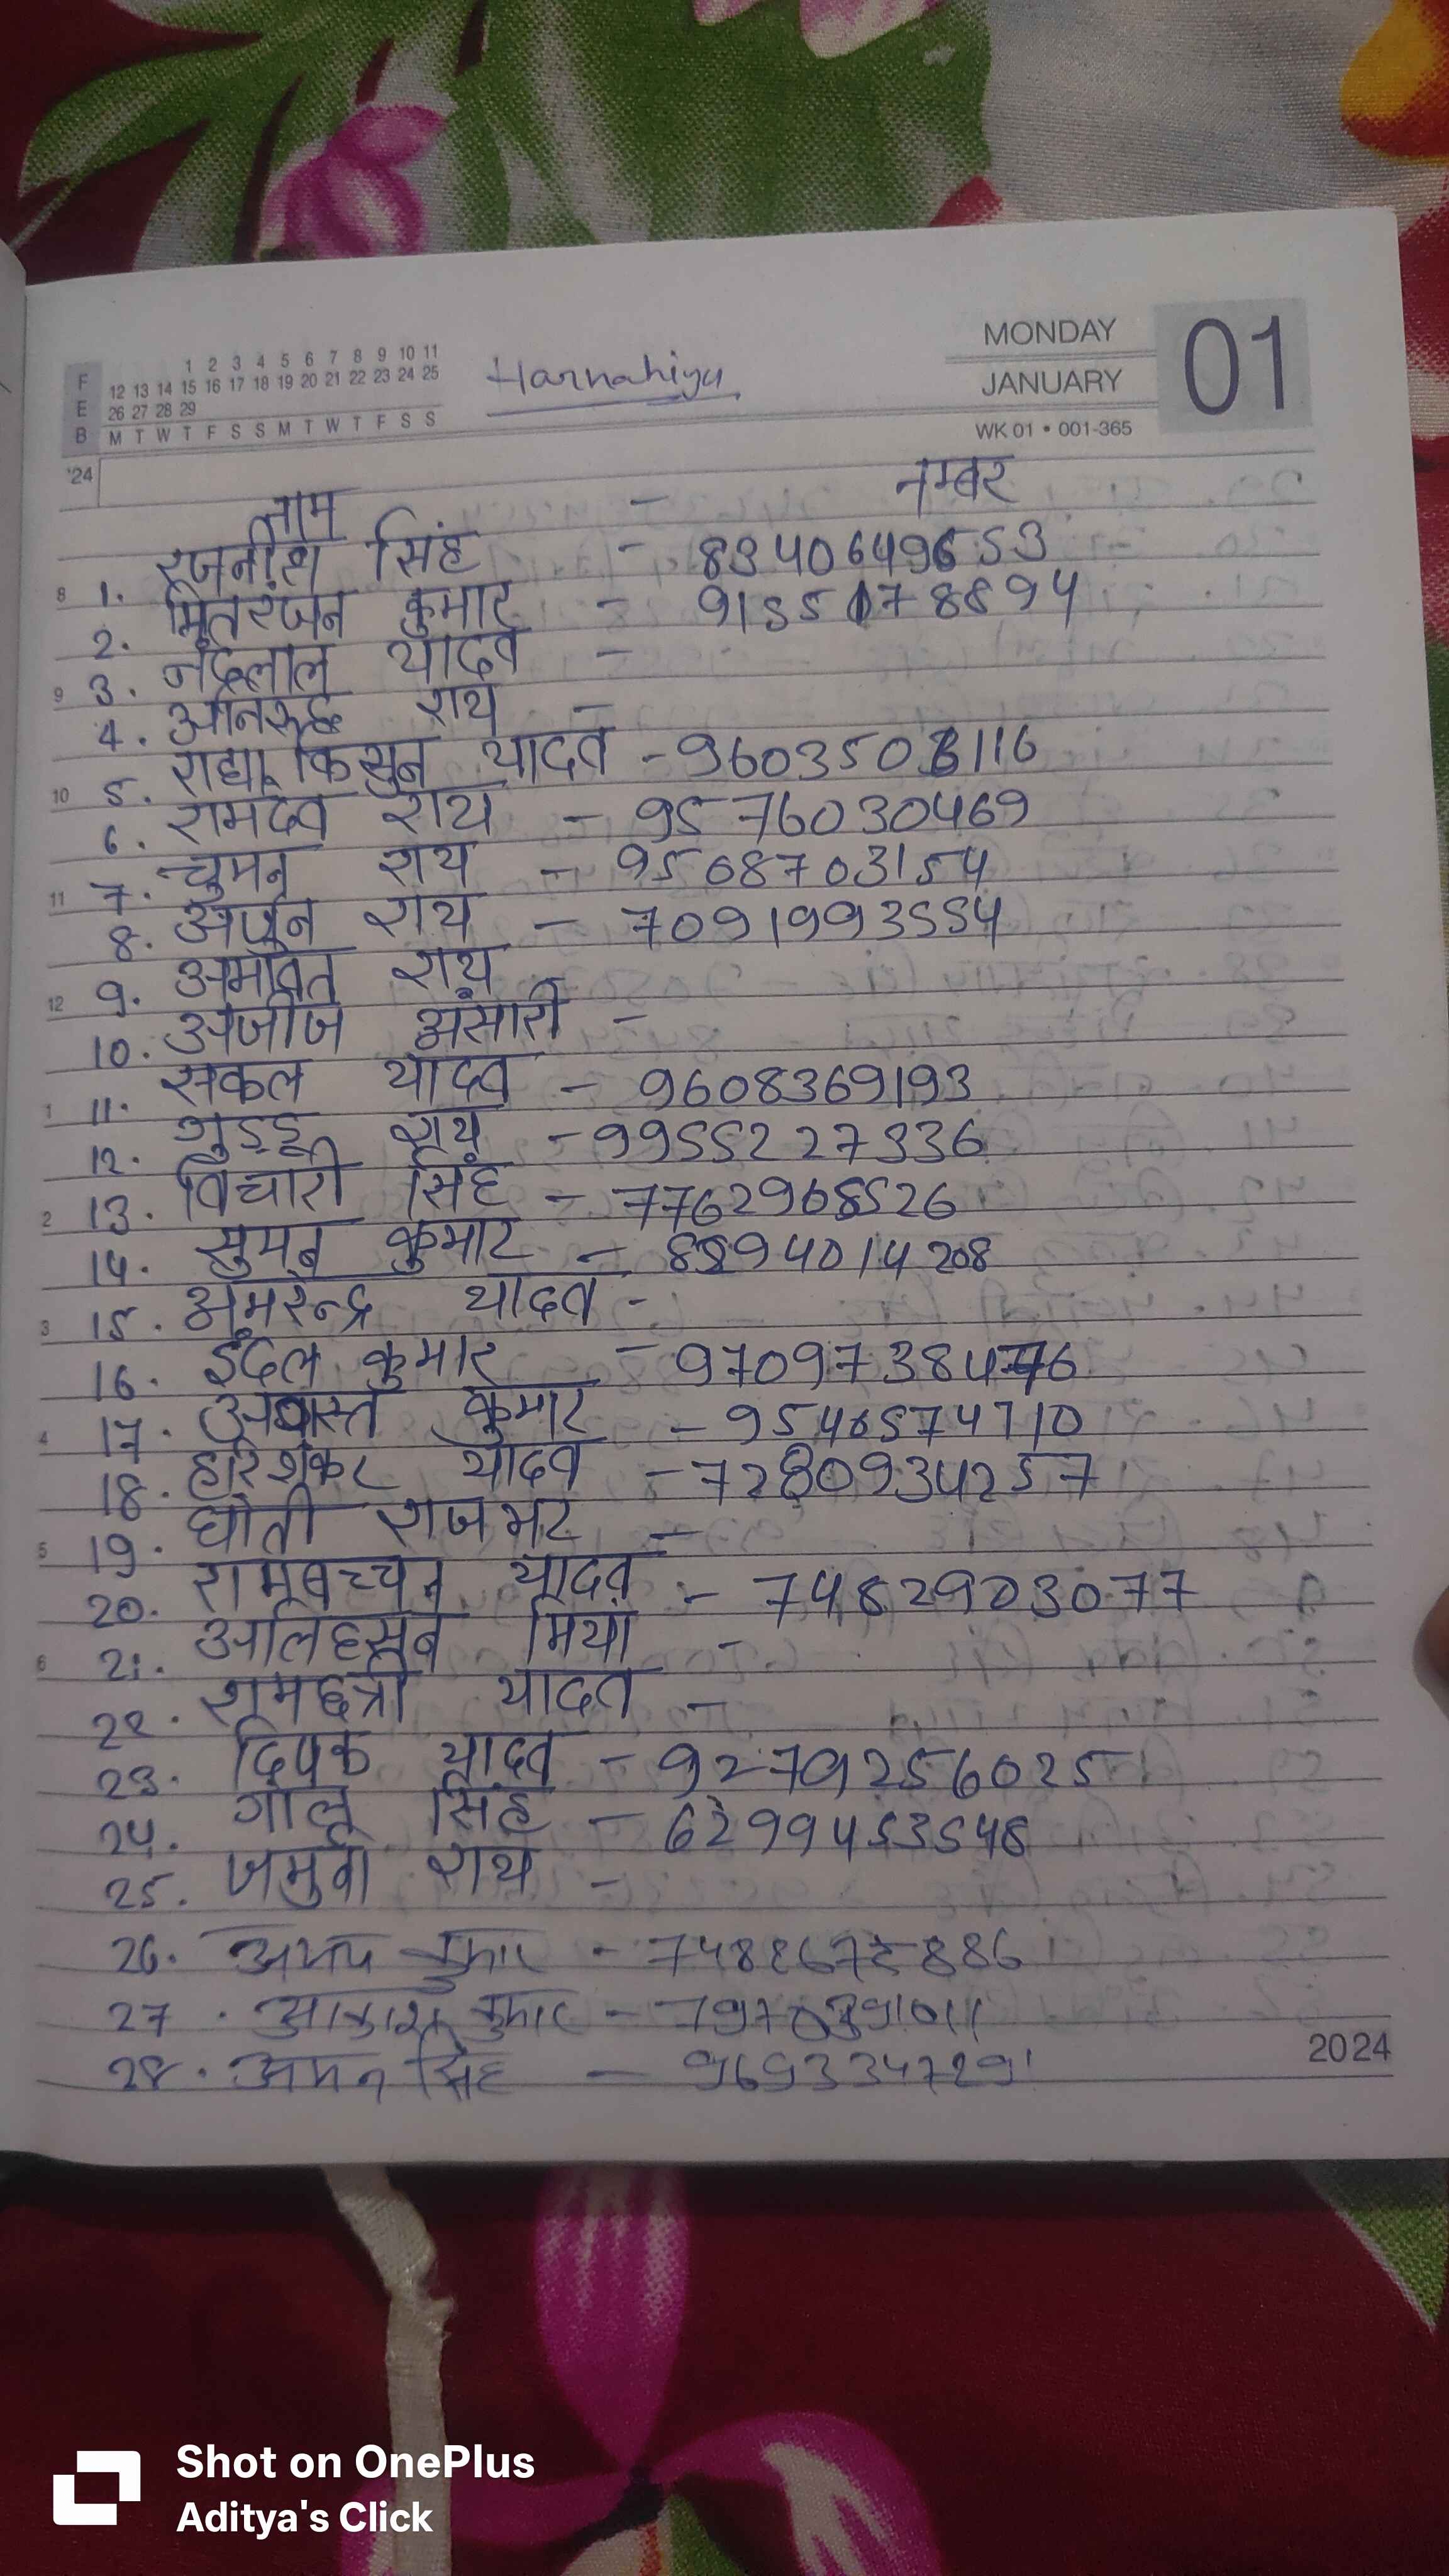 F E B
1 2 3 4 5 6 7 8 9 10 11
12 13 14 15 16 17 18 19 20 21 22 23 24 25
26 27 28 29
M T W T F S S M T W T F S S
Harnahiya
MONDAY
JANUARY
01
WK 01 • 001-365
'24
नाम - नम्बर
8 1. रजनीश सिंह - 8340649653
2. मितरंजन कुमार - 9155178894
9 3. नंदलाल यादव -
4. अनिरूद्ध राय -
10 5. राधा किसुन यादव - 9603503116
6. रामदेव राय - 9576030469
11 7. चुमन राय - 9508703154
8. अर्जुन राय - 7091993554
12 9. अमावत राय -
10. अजीज अंसारी -
1 11. सकल यादव - 9608369193
12. गुड्डू राय - 9955227336
2 13. विचारी सिंह - 7762968526
14. सुमन कुमार - 8294014208
3 15. अमरेन्द्र यादव -
16. इंदल कुमार - 9709738476
4 17. कुमार - 9546574710
18. हरिशंकर यादव - 7280934257
5 19. धोती राजभर -
20. रामबच्चन यादव - 7482903077
6 21. मियां -
22. रामछत्री यादव -
23. दिपक यादव - 9279256025
24. गोलू सिंह - 6299453548
25. जमुना राय -
26. अभय कुमार -
27. आकाश कुमार - 7970391011
28. अमन सिंह - 9693347291
2024
Shot on OnePlus
Aditya's Click